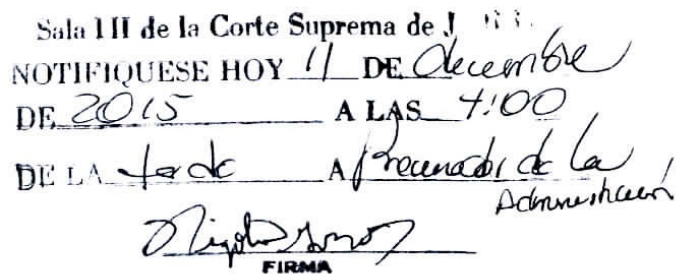 Sala III de la Corte Suprema de
NOTIFIQUESE HOY 11 DE diciembre
DE 2015 A LAS 4:00
DE LA tarde A Procurador de la
Administración
FIRMA